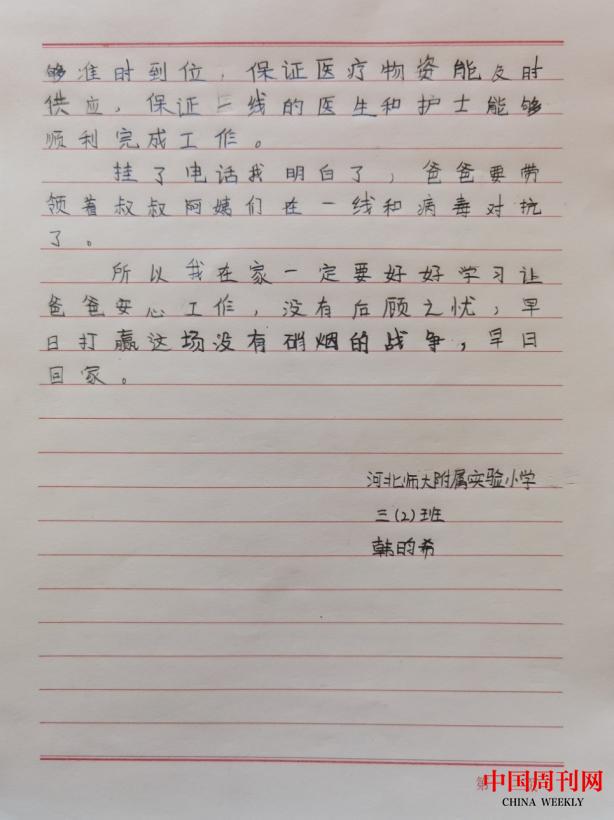 够准时到位，保证医疗物资能及时
供应，保证一线的医生和护士能够
顺利完成工作。
挂了电话我明白了，爸爸要带
领着叔叔阿姨们在一线和病毒对抗
了。
所以我在家一定要好好学习让
爸爸安心工作，没有后顾之忧，早
日打赢这场没有硝烟的战争，早日
回家。
河北师大附属实验小学
三(2)班
韩昀希
第
中国周刊网
CHINA WEEKLY